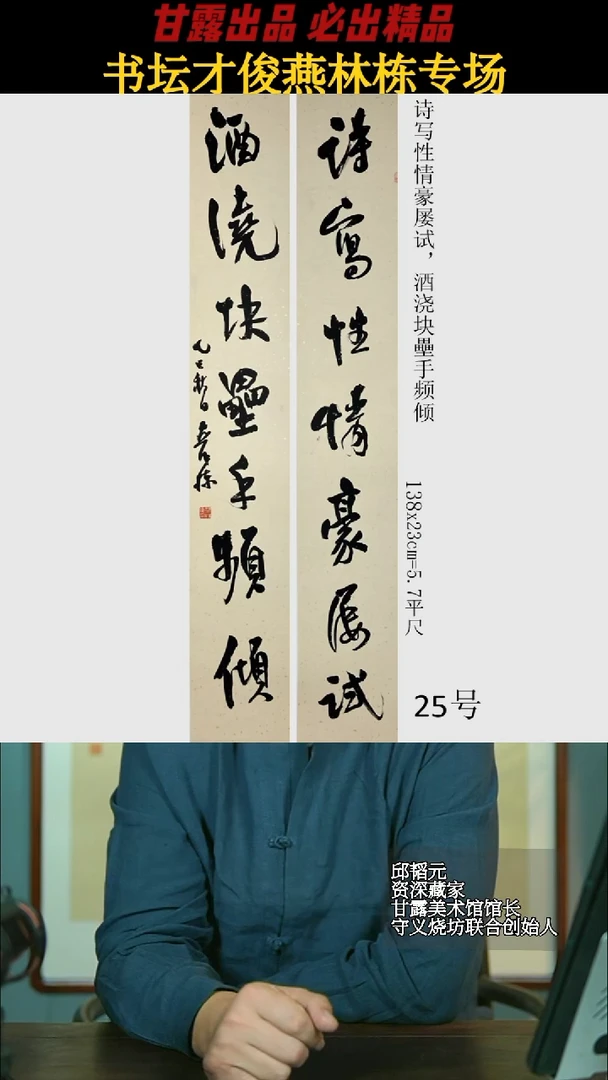 甘露出品 必出精品
书坛才俊燕林栋专场
诗寫性情豪屡试
酒澆块壘手頻傾
乙巳秋日
诗写性情豪屡试，酒浇块壘手频倾
138x23cm=5.7平尺
25号
邱韬元
资深藏家
甘露美术馆馆长
守义烧坊联合创始人